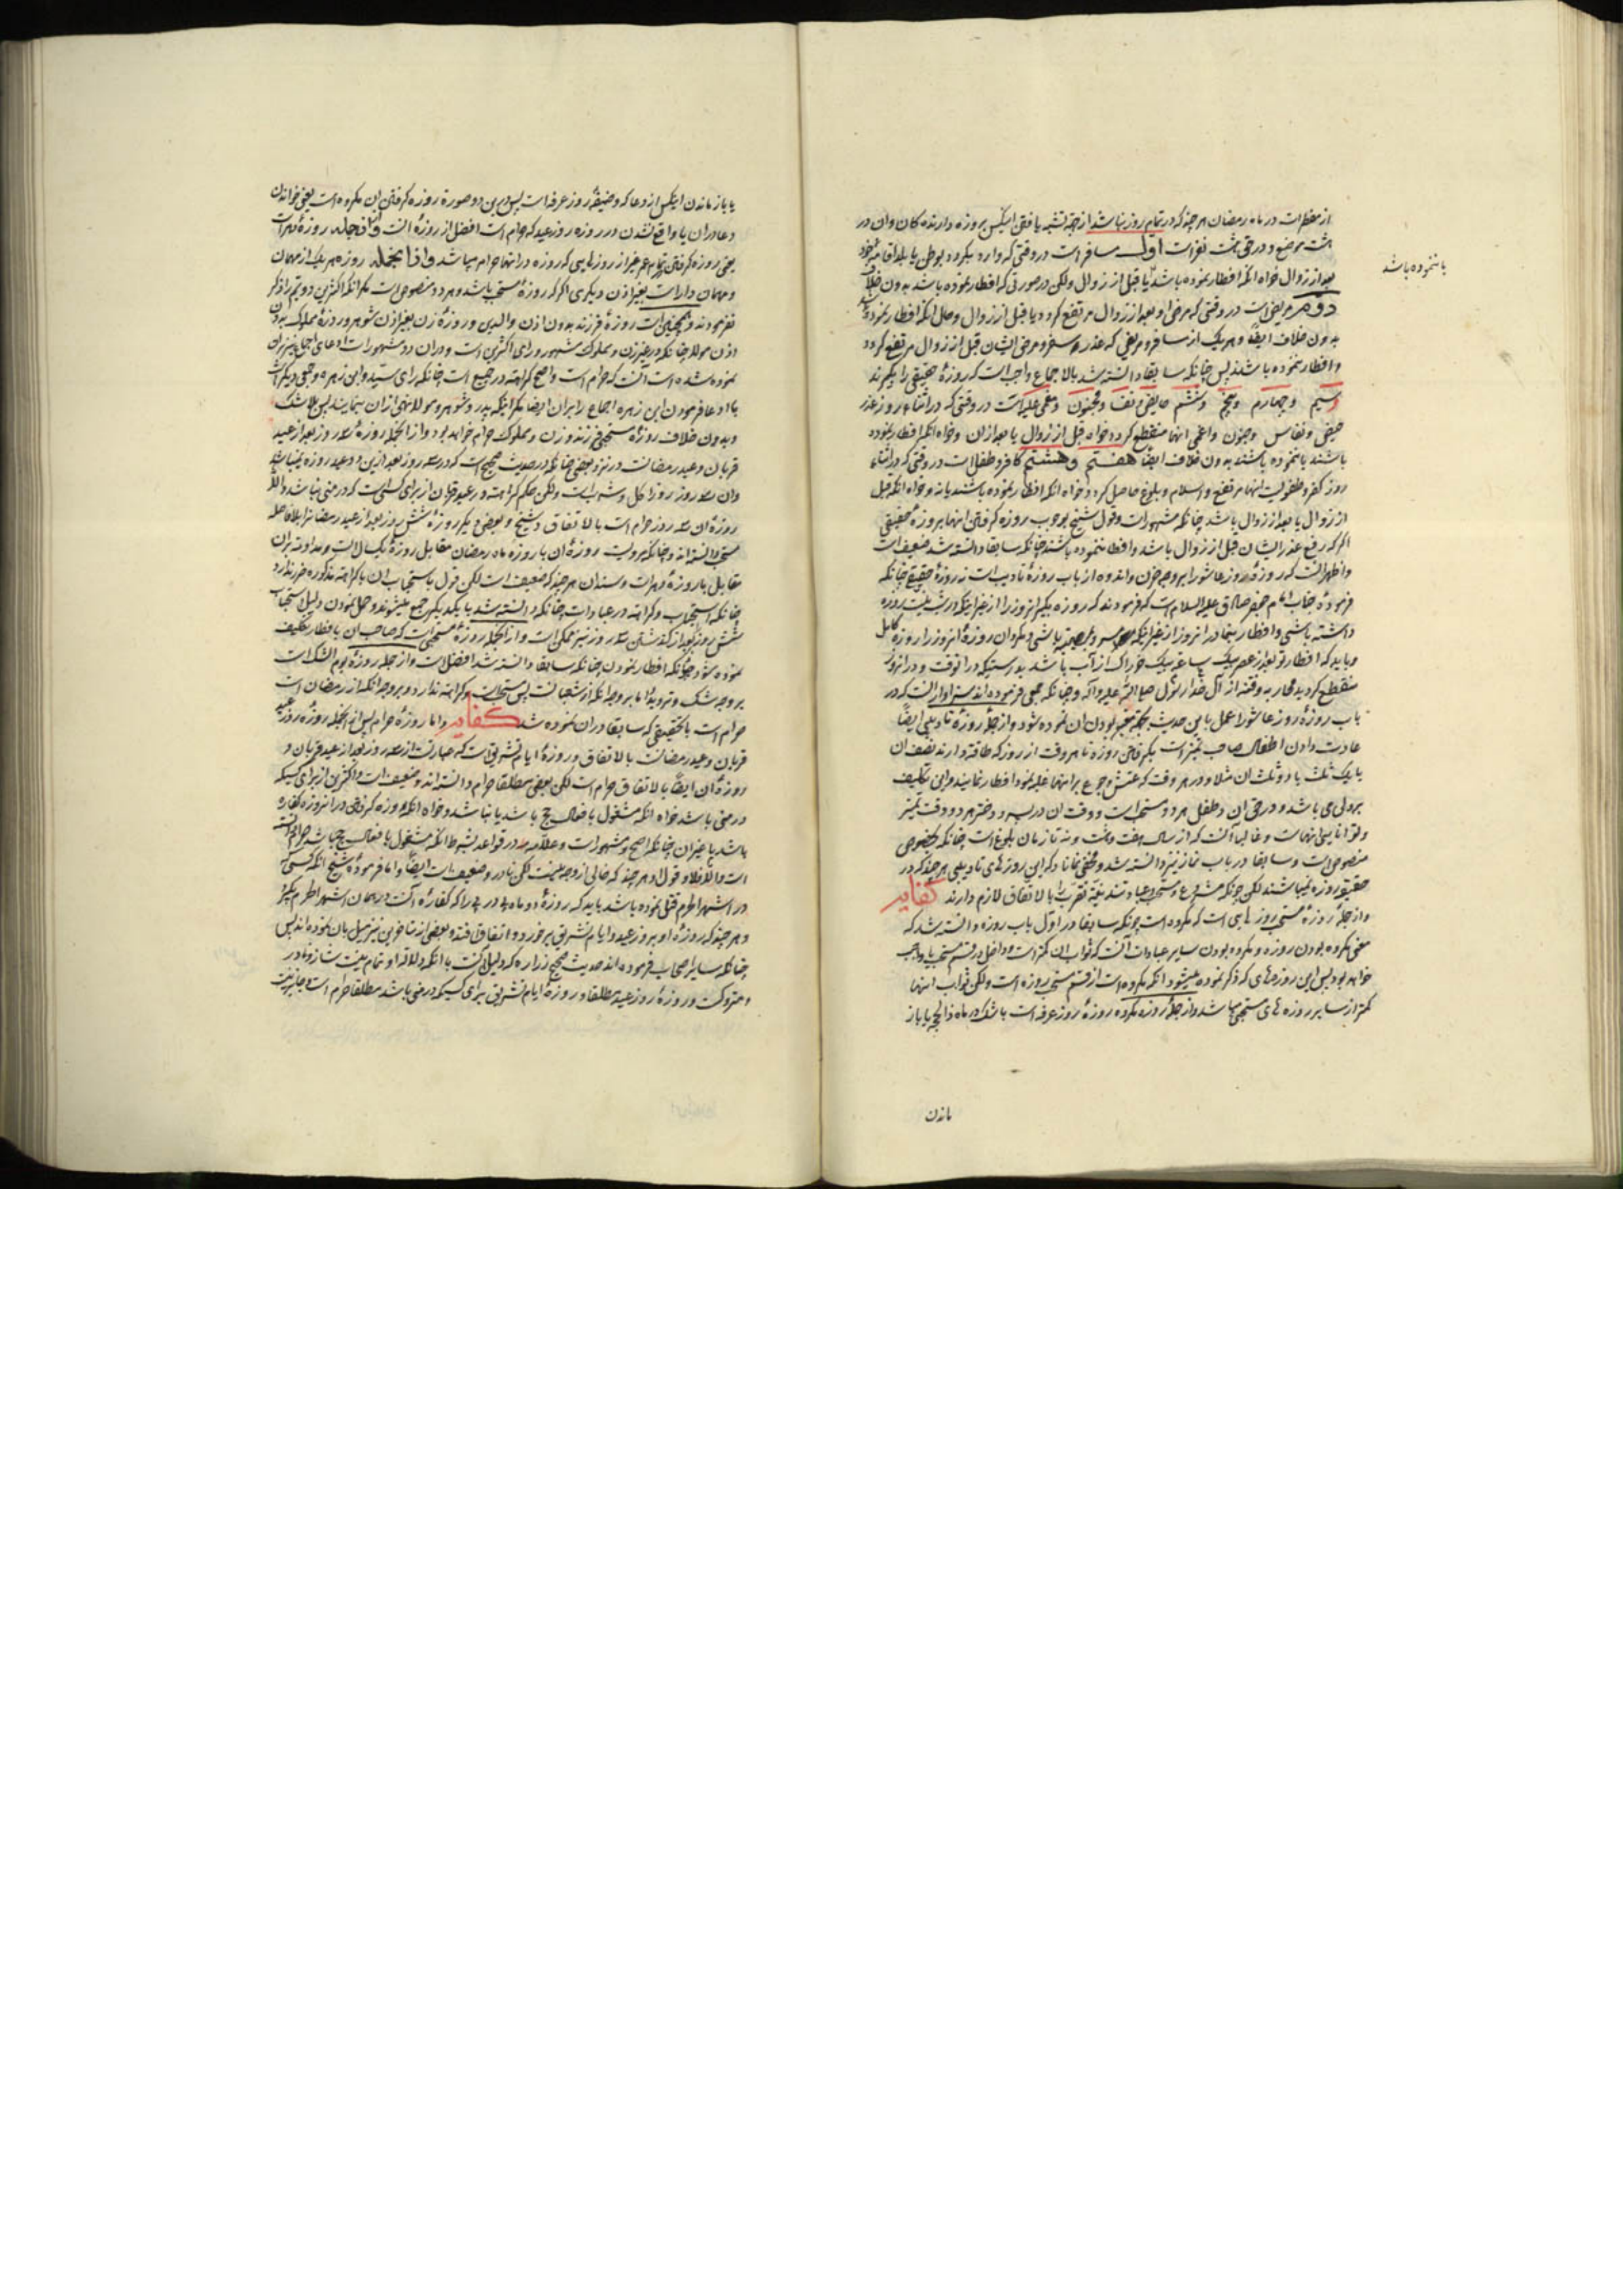 از مفطرات در ماه رمضان هر چند که در تمام روز نباشد از جهة تشبه یافتن اینکس بروزه دارنده کان وان در
هشت موضع و در حق هشت نفر است اول مسافر است در وقتی که وارد میکردد بوطن یا ببلد اقامة خود
بعد از زوال خواه انکه افطار نموده باشد یا قبل از زوال ولکن در صورتی که افطار نموده باشد بدون خلاف
یا ننموده باشد
دوم مریض است در وقتی که مرض او بعد از زوال مرتفع کردد و یا قبل از زوال و حال انکه افطار نموده باشد
بدون خلاف ایضا و هر یک از مسافر و مریض که عذر سفر و مرض ایشان قبل از زوال مرتفع کردد
و افطار ننموده باشند پس چنانکه سابقا دانسته شد بالاجماع واجب است که روزهٔ حقیقی را بکیرند
و سیم و چهارم و پنجم و ششم حایض و نفسا و مجنون و مغمی علیه است در وقتی که در اثناء روز عذر
حیض و نفاس و جنون و اغمی انها منقطع کردد خواه قبل از زوال یا بعد ازان و خواه انکه افطار نموده
باشند یا ننموده باشند بدون خلاف ایضا هفتم و هشتم کافر و طفل است در وقتی که در اثناء
روز کفر و طفولیت انها مرتفع و اسلام و بلوغ حاصل کردد خواه انکه افطار نموده باشند یا نه و خواه انکه قبل
از زوال یا بعد از زوال باشد چنانکه مشهور است و قول شیخ بوجوب روزه کرفتن انها بروزهٔ حقیقی
اکر که رفع عذر ایشان قبل از زوال باشد و افطار ننموده باشند چنانکه سابقا دانسته شد ضعیف است
و اظهر انست که روزهٔ روز عاشورا بر وجه حزن و اندوه از باب روزهٔ تادیب است نه روزهٔ حقیقی چنانکه
فرمودهٔ جناب امام جعفر صادق علیه السلام است که فرمودند که روزه بکیر انروز را از غیر اینکه در شب نیت روزه
داشته باشی و افطار بنما در انروز از غیر اینکه باشی و مکردان روزهٔ انروز را روزهٔ کامل
و باید که افطار تو بعد از عصر بیک ساعة بیک خوراک از آب باشد بدرستیکه در انوقت و در انروز
منقطع کردید محاربه و فتنه از آل رسول صلی الله علیه و آله و چنانکه جمعی فرموده اند سزاوار انست که در
باب روزهٔ روز عاشورا عمل باین حدیث بجهة معتبر بودن ان نموده شود و از جملهٔ روزهٔ تادیبی ایضا
عادت دادن اطفال صاحب تمیز است بکرفتن روزه تا هر وقت از روز که طاقة دارند نصف ان
یا یک ثلث یا دو ثلث ان مثلا و در هر وقت که عتش و جوع بر انها غلبه نمود افطار نمایند و این تکلیف
بر ولی می باشد و در حق ان و طفل هر دو مستحب است و وقت ان در پسر و دختر هر دو وقت تمیز
و توانایی انهاست و غالبا آنست که از سال هفت و هشت و نه تا زمان بلوغ است چنانکه بخصوص
منصوص است و سابقا در باب نماز نیز دانسته شد و مخفی نماناد که این روزهای تادیبی هر چند که در
حقیقة روزه نمیباشند لکن چونکه مشروع و مستحب و عبادتند نیة تقرب را بالاتفاق لازم دارند کفایه
و از جملهٔ روزهٔ مستحبی روزهایی است که مکروه است چونکه سابقا در اول باب روزه دانسته شد که
معنی مکروه بودن روزه و مکروه بودن سایر عبادات آنست که ثواب ان کمتر است و داخل در قسم مستحب یا واجب
خواهد بود پس این روزهای که ذکر نموده میشود انکه مکروه است از قسم مستحب روزه است ولکن ثواب انها
کمتر از سایر روزه های مستحبی میباشد و از جملهٔ روزه مکروه روزهٔ روز عرفه است با شک در ماه ذالحجه یا باز
ماندن
یا باز ماندن اینکس از دعا که وظیفهٔ روز عرفه است پس در این دو صورة روزه کرفتن ان مکروه است یعنی خواندن
دعا در ان یا واقع نشدن در روزه روز عید که حرام است افضل از روزهٔ انست و از انجمله روزهٔ دهر است
یعنی روزه کرفتن تمام عمر غیر از روزهایی که روزه در انها حرام میباشد و از انجمله روزه هر یک از مهمان
و مهمان دار است بغیر اذن دیکری اکر که روزهٔ مستحب باشد و هر دو منصوص است مکر انکه اکثرین دویم را ذکر
نفرمودند و همچنین است روزهٔ فرزند بدون اذن والدین و روزهٔ زن بغیر اذن شوهر و روزهٔ مملوک بدون
اذن مولا چنانکه در غیر زن و مملوک مشهور و رای اکثرین است و در ان دو مشهور است ادعای اجماع نیز بران
نموده شده است آنست که حرام است و اصح کراهة در جمیع است چنانکه رای سید و ابن زهره و جمعی دیکر است
با ادعا فرمودن ابن زهره اجماع را بران ایضا مکر اینکه پدر و شوهر و مولا نهی ازان بنمایند پس بلا شک
و بدون خلاف روزهٔ مستحبی فرزند و زن و مملوک حرام خواهد بود و از انجمله روزهٔ سه روز بعد از عید
قربان و عید رمضانست در نزد بعضی چنانکه در حدیث صحیح است که در سه روز بعد ازین دو عید روزه نمیباشد
وان سه روز روز اکل و شرب است ولکن حکم کراهة در عید قربان از برای کسی است که در منی نباشد والا
روزهٔ ان سه روز حرام است بالاتفاق و شیخ و بعضی دیکر روزهٔ شش روز بعد از عید رمضانرا بلافاصله
مستحب دانسته اند و چنانکه مرویست روزهٔ ان با روزه ماه رمضان مقابل روزهٔ یک سال است و مداومة بران
مقابل با روزهٔ دهر است و سند ان هر چند که ضعیف است لکن قول باستحباب ان با کراهة مذکوره ضرر ندارد
چنانکه استحباب و کراهة در عبادات چنانکه دانسته شد با یکدیکر جمع میشوند و حمل نمودن دلیل استحباب
شش روز بعد از کذشتن سه روز نیز ممکن است و از انجمله روزهٔ مستحبی است که صاحب ان بافطار تکلیف
نموده شود چنانکه افطار نمودن چنانکه سابقا دانسته شد افضل است و از جمله روزهٔ یوم الشک است
بر وجه شک و تردید اما بر وجه انکه از شعبانست پس مستحب و کراهة ندارد و بر وجه انکه از رمضان است
حرام است با تحقیقی که سابقا در ان نموده شد کفایه و اما روزهٔ حرام پس از انجمله روزهٔ روز عید
قربان و عید رمضانست بالاتفاق و روزهٔ ایام تشریق است که عبارتست از سه روز بعد از عید قربان و
روزهٔ ان ایضا بالاتفاق حرام است لکن بعضی مطلقا حرام دانسته اند و ضعیف است و اکثرین از برای کسیکه
در منی باشد خواه انکه مشغول بافعال حج باشد یا نباشد و خواه انکه روزه کرفتن در انروز روزه کفاره
باشد یا غیر ان چنانکه اصح و مشهور است و علامه در قواعد بشرط انکه مشغول بافعال حج باشد حرام دانسته
است والا فلا و قول او هر چند که خالی از وجه نیست لکن نادر و ضعیف است ایضا و اما فرمودهٔ شیخ انکه کسی که
در اشهر الحرم قتل نموده باشد باید که روزهٔ دو ماه پی در پی را که کفارهٔ آنست در همان اشهر الحرم بکیرد
و هر چند که روزهٔ او بروز عید و ایام تشریق برخورد و اتفاق افتد و بعضی از متاخرین نیز میل بان نموده اند پس
چنانکه سایر اصحاب فرموده اند حدیث صحیح زراره که دلیل آنست با انکه دلالة او تمام نیست شاذ و نادر
و متروکست و روزهٔ روز عید مطلقا و روزهٔ ایام تشریق برای کسیکه در منی باشد مطلقا حرام است و جایز نیست